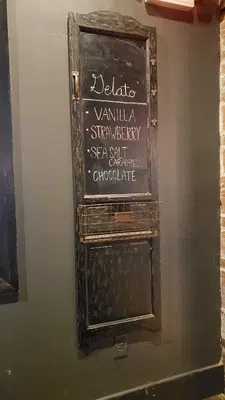 Gelato
• VANILLA
• STRAWBERRY
• SEA SALT
CARAMEL
• CHOCOLATE